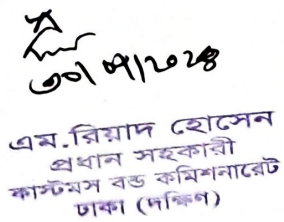 এম. রিয়াদ হোসেন
প্রধান সহকারী
কাস্টমস বন্ড কমিশনারেট
ঢাকা (দক্ষিণ)